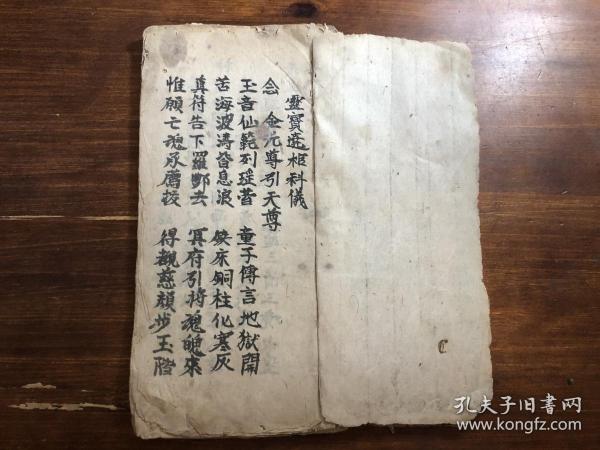 靈寶達柜科儀
念 金光尊引天尊
玉音仙範列瑤階 童子傳言地獄開
苦海波濤皆息浪 鉄床銅柱化寒灰
真符告下羅酆去 冥府引將魂魄來
惟願亡魂承薦拔 得觀慈顏步玉階
孔夫子旧書网
www.kongfz.com